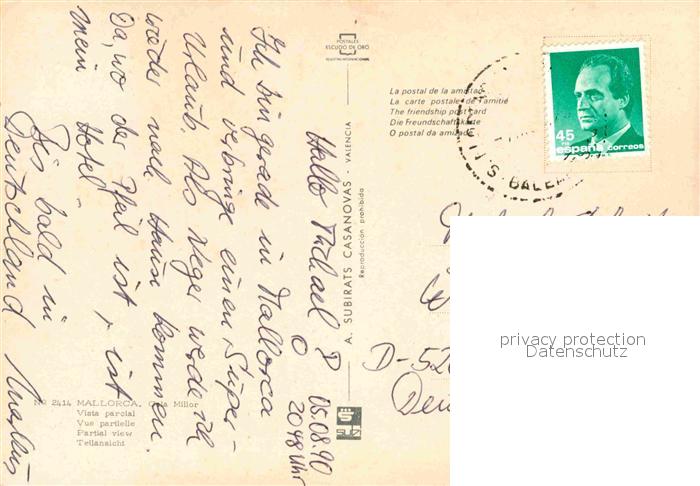 05.08.90
20 48 Uhr
Hallo Michael !
Ich bin gerade in Mallorca
und verbringe einen Super-
Urlaub. Als Neger werde ich
wieder nach Hause kommen.
Da, wo der Pfeil ist, ist
mein Hotel.
Bis bald in
Deutschland
Markus
POSTALES
ESCUDO DE ORO
A. SUBIRATS CASANOVAS - VALENCIA
Reproducción prohibida
La postal de la amistad
La carte postale de l'amitié
The friendship postcard
Die Freundschaftskarte
O postal da amizade
45
PTA
españa correos
BALEA
D-52
Deu
Nº 2414 MALLORCA. Cala Millor
Vista parcial
Vue partielle
Partial view
Teilansicht
privacy protection
Datenschutz